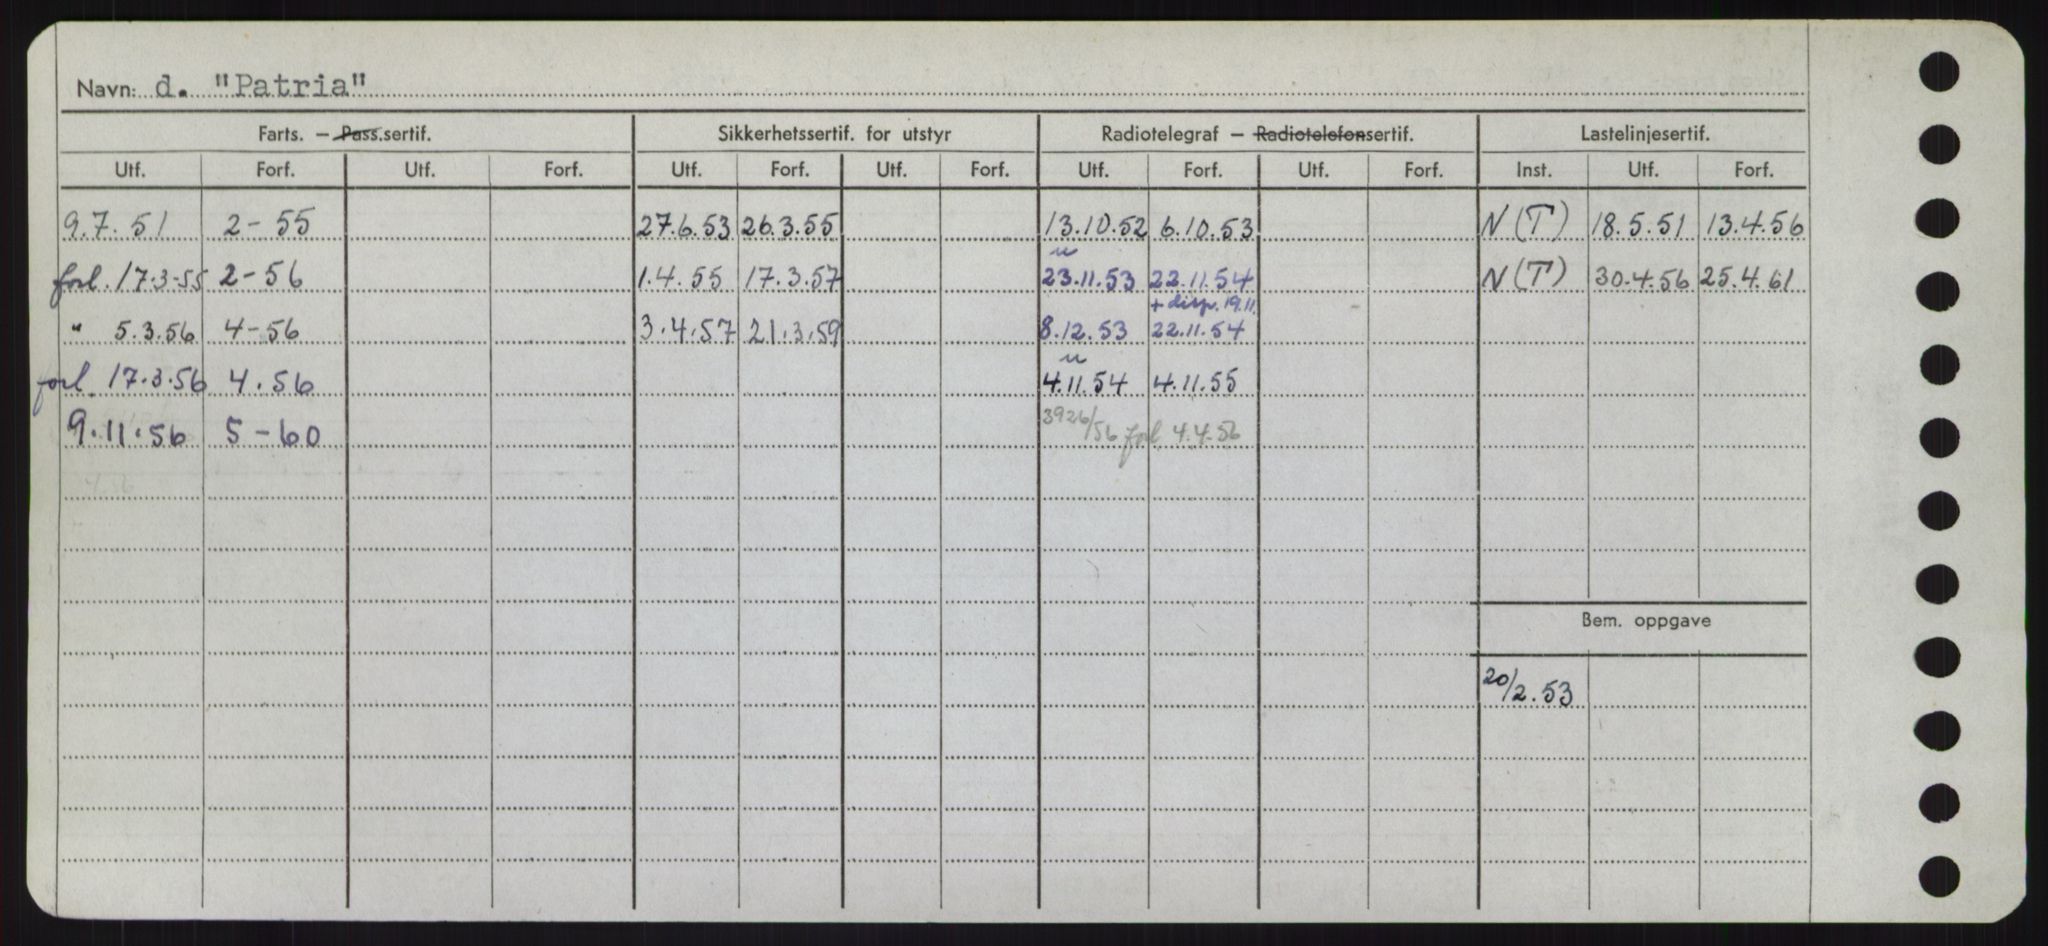 Navn: d. "Patria"
Farts. — Pass.sertif. Sikkerhetssertif. for utstyr Radiotelegraf — Radiotelefonsertif. Lastelinjesertif.
Utf. Forf. Utf. Forf. Utf. Forf. Utf. Forf. Utf. Forf. Utf. Forf. Inst. Utf. Forf.
9.7.51 2-55 27.6.53 26.3.55 13.10.52 6.10.53 N(T) 18.5.51 13.4.56
forl. 17.3-55 2-56 1.4.55 17.3.57 23.11.53 22.11.54 N(T) 30.4.56 25.4.61
+ disp. 19.11.
" 5.3.56 4-56 3.4.57 21.3.59 8.12.53 22.11.54
forl. 17.3.56 4.56 4.11.54 4.11.55
9.11.56 5-60 3926/56 forl 4.4.56
4.56
Bem. oppgave
20/2.53